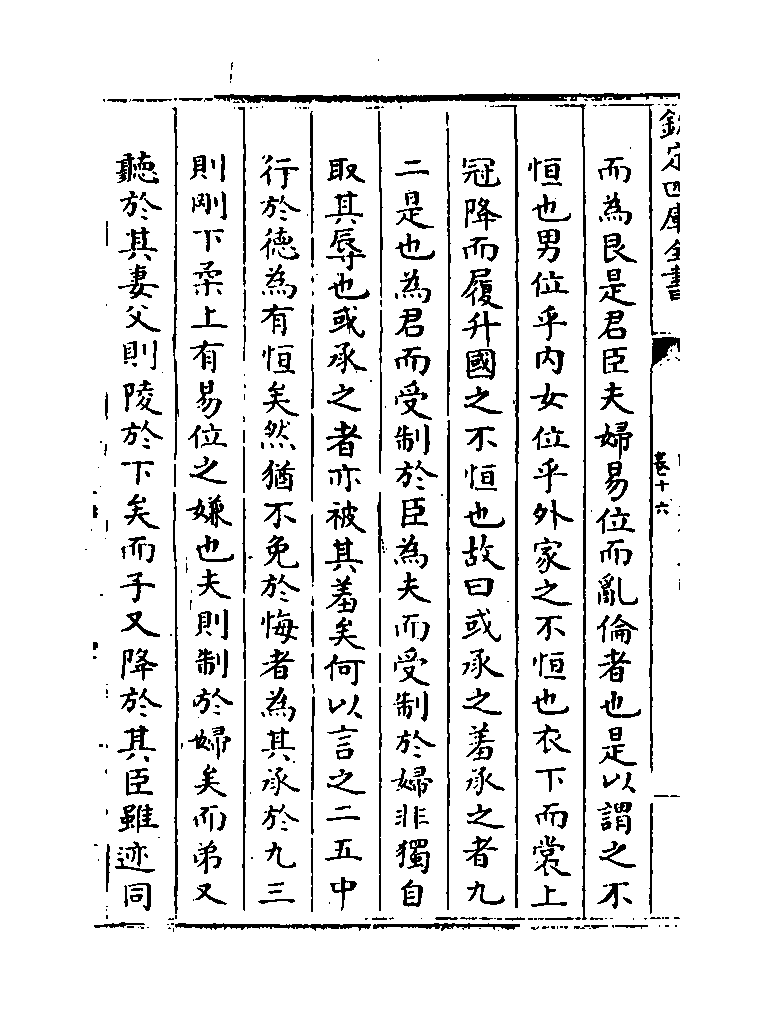 欽定四庫全書
卷十六
而為艮是君臣夫婦易位而亂倫者也是以謂之不
恒也男位乎内女位乎外家之不恒也衣下而裳上
冠降而履升國之不恒也故曰或承之羞承之者九
二是也為君而受制於臣為夫而受制於婦非獨自
取其辱也或承之者亦被其羞矣何以言之二五中
行於德為有恒矣然猶不免於悔者為其承於九三
則剛下柔上有易位之嫌也夫則制於婦矣而弟又
聽於其妻父則陵於下矣而子又降於其臣雖迹同